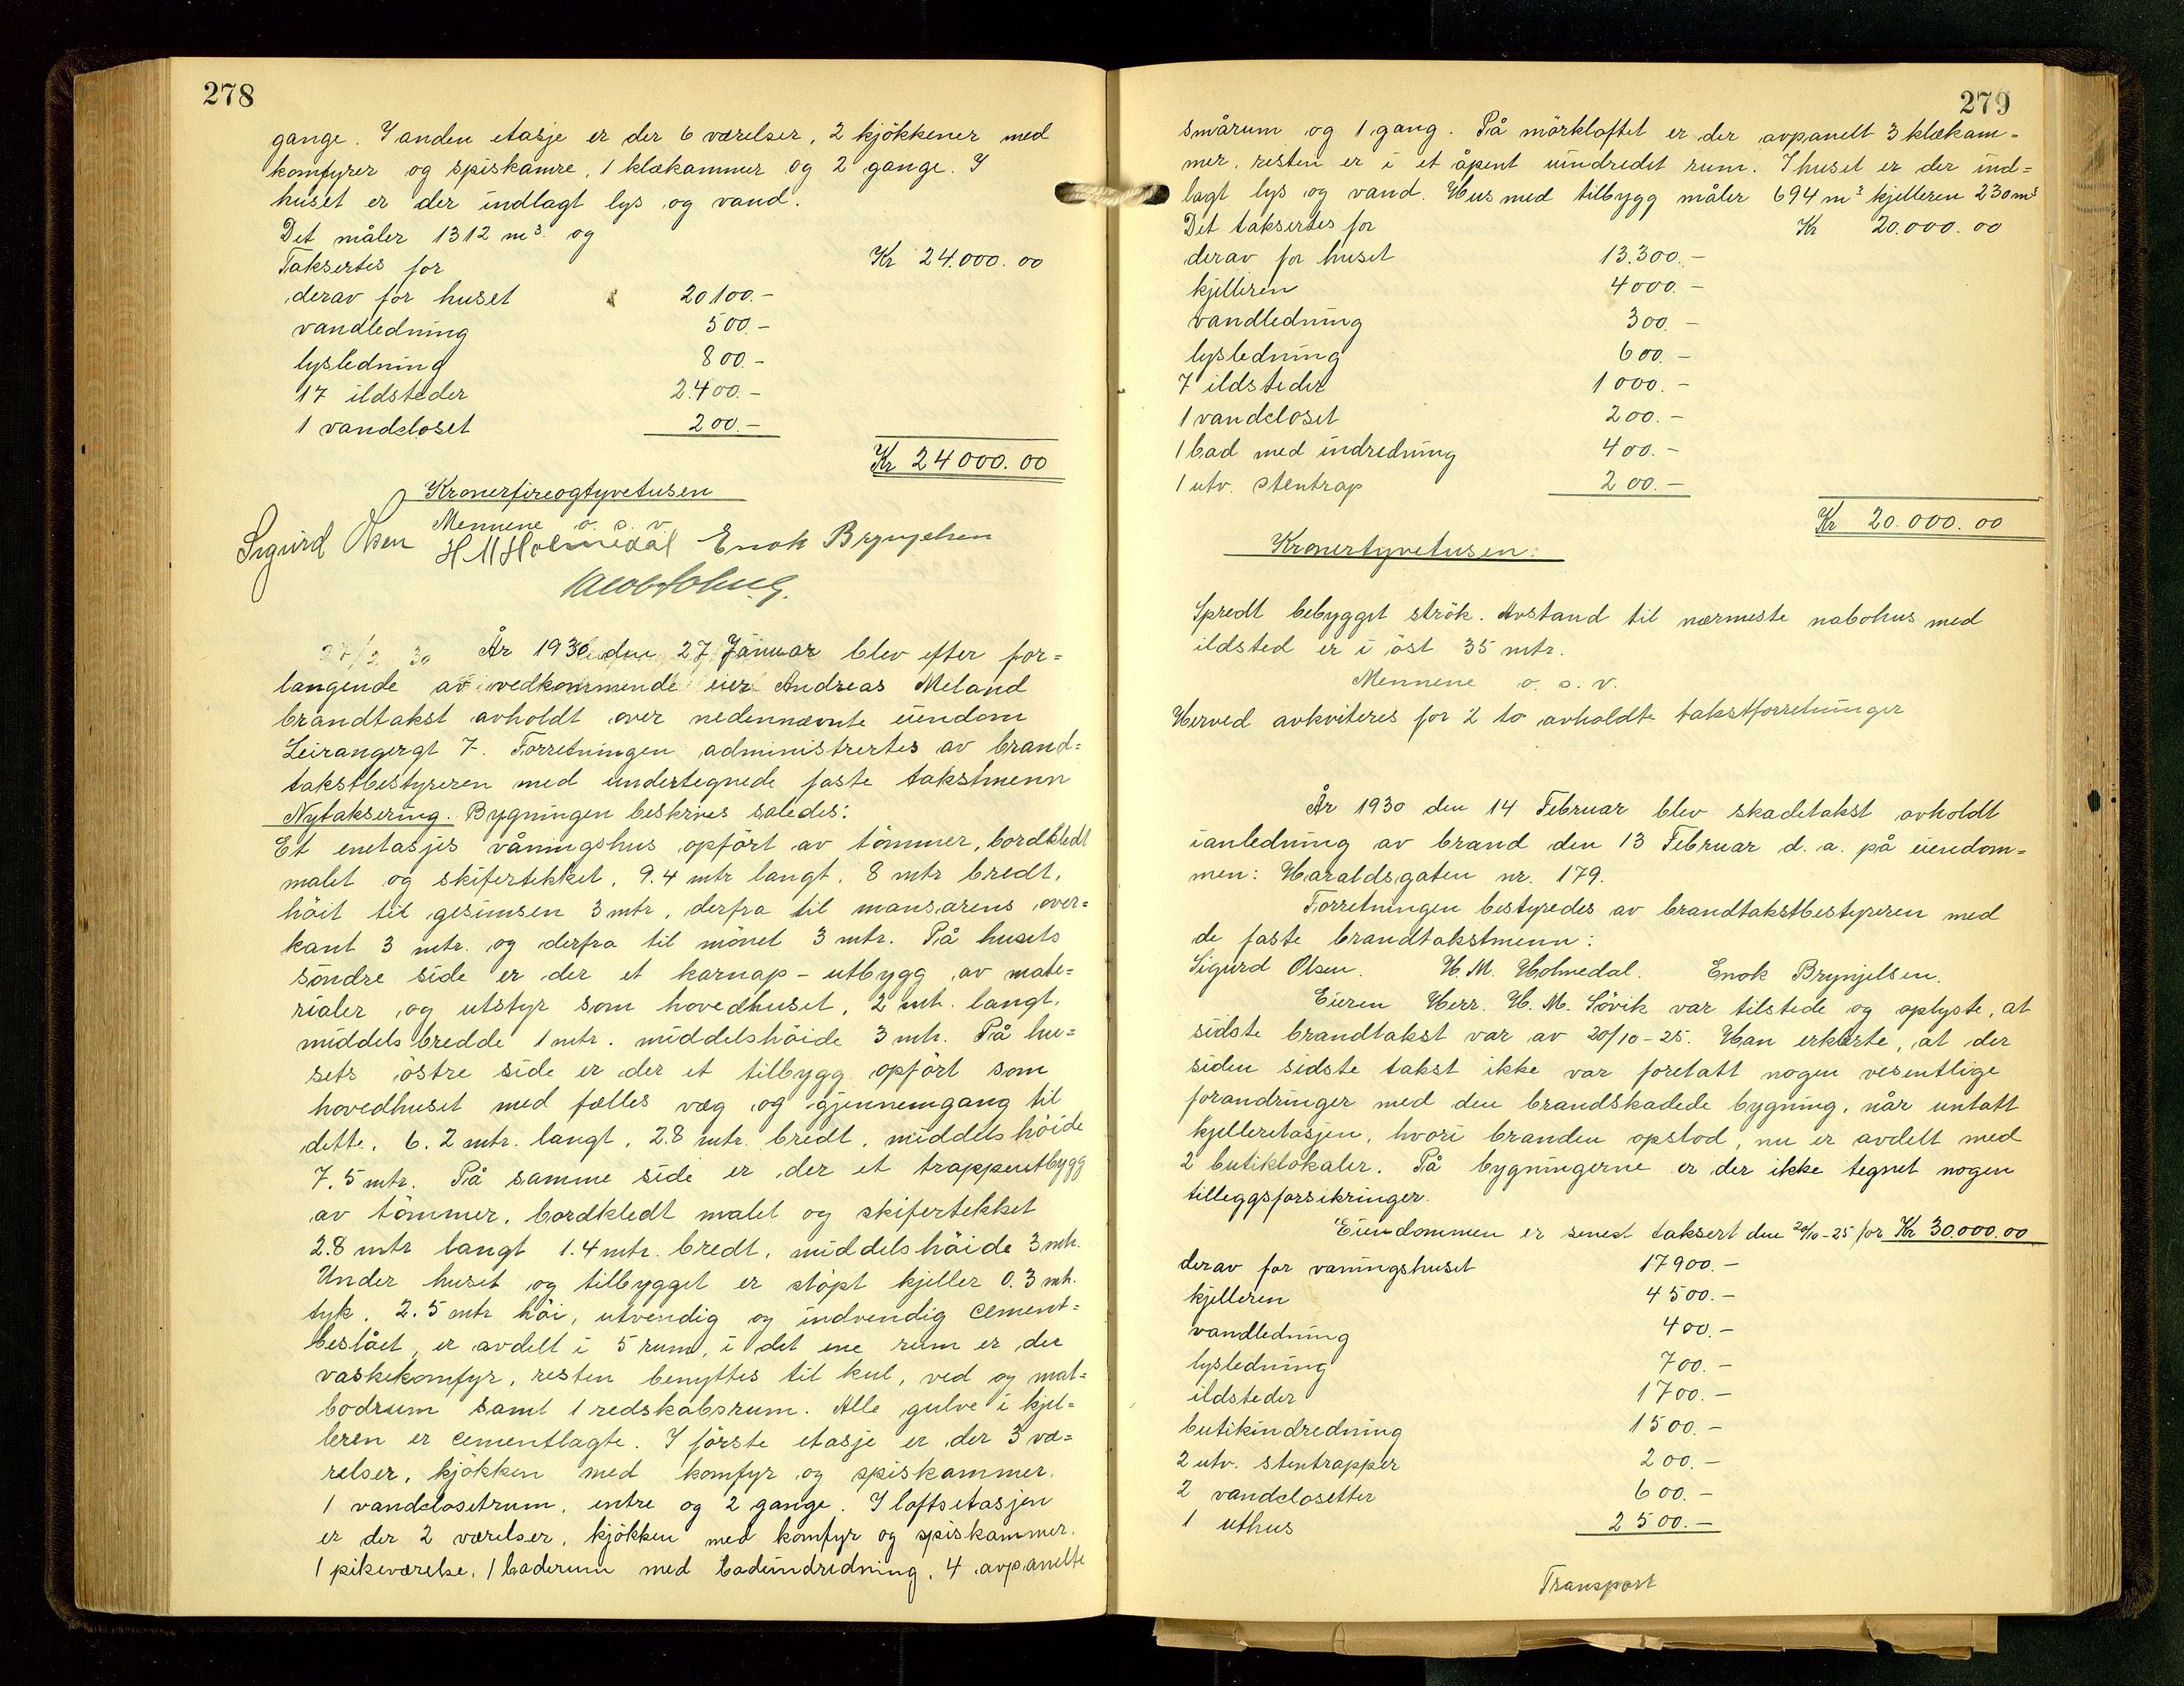 278
gange. I anden etasje er der 6 værelser, 2 kjökkener med
komfyrer og spiskamre, 1 klækammer og 2 gange. I
huset er der indlagt lys og vand.
Det måler 1312 m³ og
Taksertes for Kr 24.000.00
derav for huset 20100.-
vandledning 500.-
lysledning 800.-
17 ildsteder 2.400.-
1 vandcloset 200.-
Kr 24000.00
Kronerfireogtyvetusen
Mennene o. s. v.
Sigurd Olsen H M Holmedal Enok Brynjelsen
27/2 30 År 1930 den 27 Januar blev efter for=
langende av vedkommende eier Andreas Meland
brandtakst avholdt over nedennævnte eiendom
Leirangergt 7. Forretningen administrertes av brand=
takstbestyreren med undertegnede faste takstmenn
Nytaksering. Bygningen beskrives saledes:
Et enetasjes våningshus opfört av tömmer, bordkledt
malet og skifertekket, 9.4 mtr langt, 8 mtr bredt,
höit til gesimsen 3 mtr, derfra til mansarens over=
kant 3 mtr. og derfra til mönet 3 mtr. På husets
söndre side er der et karnap-utbygg av mate=
rialer og utstyr som hovedhuset, 2 mtr. langt,
middels bredde 1 mtr. middelshöide 3 mtr. På hu=
sets östre side er der et tilbygg opfört som
hovedhuset med fælles væg og gjennemgang til
dette, 6.2 mtr. langt, 2.8 mtr. bredt, middels höide
7.5 mtr. På samme side er der et trappeutbygg
av tömmer, bordkledt malet og skifertekket
2.8 mtr langt 1.4 mtr. bredt, middelshöide 3 mtr.
Under huset og tilbygget er stöpt kjeller 0.3 mtr.
tyk. 2.5 mtr höi, utvendig og indvendig cement=
beslået, er avdelt i 5 rum, i det ene rum er der
vaskekomfyr, resten benyttes til kul, ved og mat=
bodrum samt 1 redskabsrum. Alle gulve i kjel=
leren er cementlagte. I förste etasje er der 3 væ=
relser, kjökken med komfyr og spiskammer,
1 vandclosetrum, entre og 2 gange. I loftsetasjen
er der 2 værelser, kjökken med komfyr og spiskammer.
1 pikeværelse, 1 baderum med badeindredning, 4 avpanelte
279
smårum og 1 gang. På mörkloftet er der avpanelt 3 klækam=
mer, resten er i et åpent uindredet rum. I huset er der ind=
lagt lys og vand. Hus med tilbygg måler 694 m³ kjelleren 230 m³
Det taksertes for Kr 20.000.00
derav for huset 13.300.-
kjelleren 4000.-
vandledning 300.-
lysledning 600.-
7 ildsteder 1000.-
1 vandcloset 200.-
1 bad med indredning 400.-
1 utv. stentrap 200.-
Kr 20.000.00
Kronertyvetusen:
Spredt bebygget strök. Avstand til nærmeste nabohus med
ildsted er i öst 35 mtr.
Mennene o. s. v.
Herved avkviteres for 2 to avholdte takstforretninger
År 1930 den 14 Februar blev skadetakst avholdt
ianledning av brand den 13 Februar d. a. på eiendom=
men: Haraldsgaten nr. 179.
Forretningen bestyredes av brandtakstbestyreren med
de faste brandtakstmenn:
Sigurd Olsen. H. M. Holmedal. Enok Brynjelsen.
Eieren Herr. H. M. Lövik var tilstede og oplyste, at
sidste brandtakst var av 20/10-25. Han erklærte, at der
siden sidste takst ikke var foretatt nogen vesentlige
forandringer med den brandskadede bygning, når untatt
kjelleretasjen, hvori branden opstod, nu er avdelt med
2 butiklokaler. På bygningerne er der ikke tegnet nogen
tilleggsforsikringer.
Eiendommen er senest taksert den 20/10-25 for Kr 30.000.00
derav for vaningshuset 17900.-
kjelleren 4500.-
vandledning 400.-
lysledning 700.-
ildsteder 1700.-
butikindredning 1500.-
2 utv. stentrapper 200.-
2 vandclosetter 600.-
1 uthus 2500.-
Transport